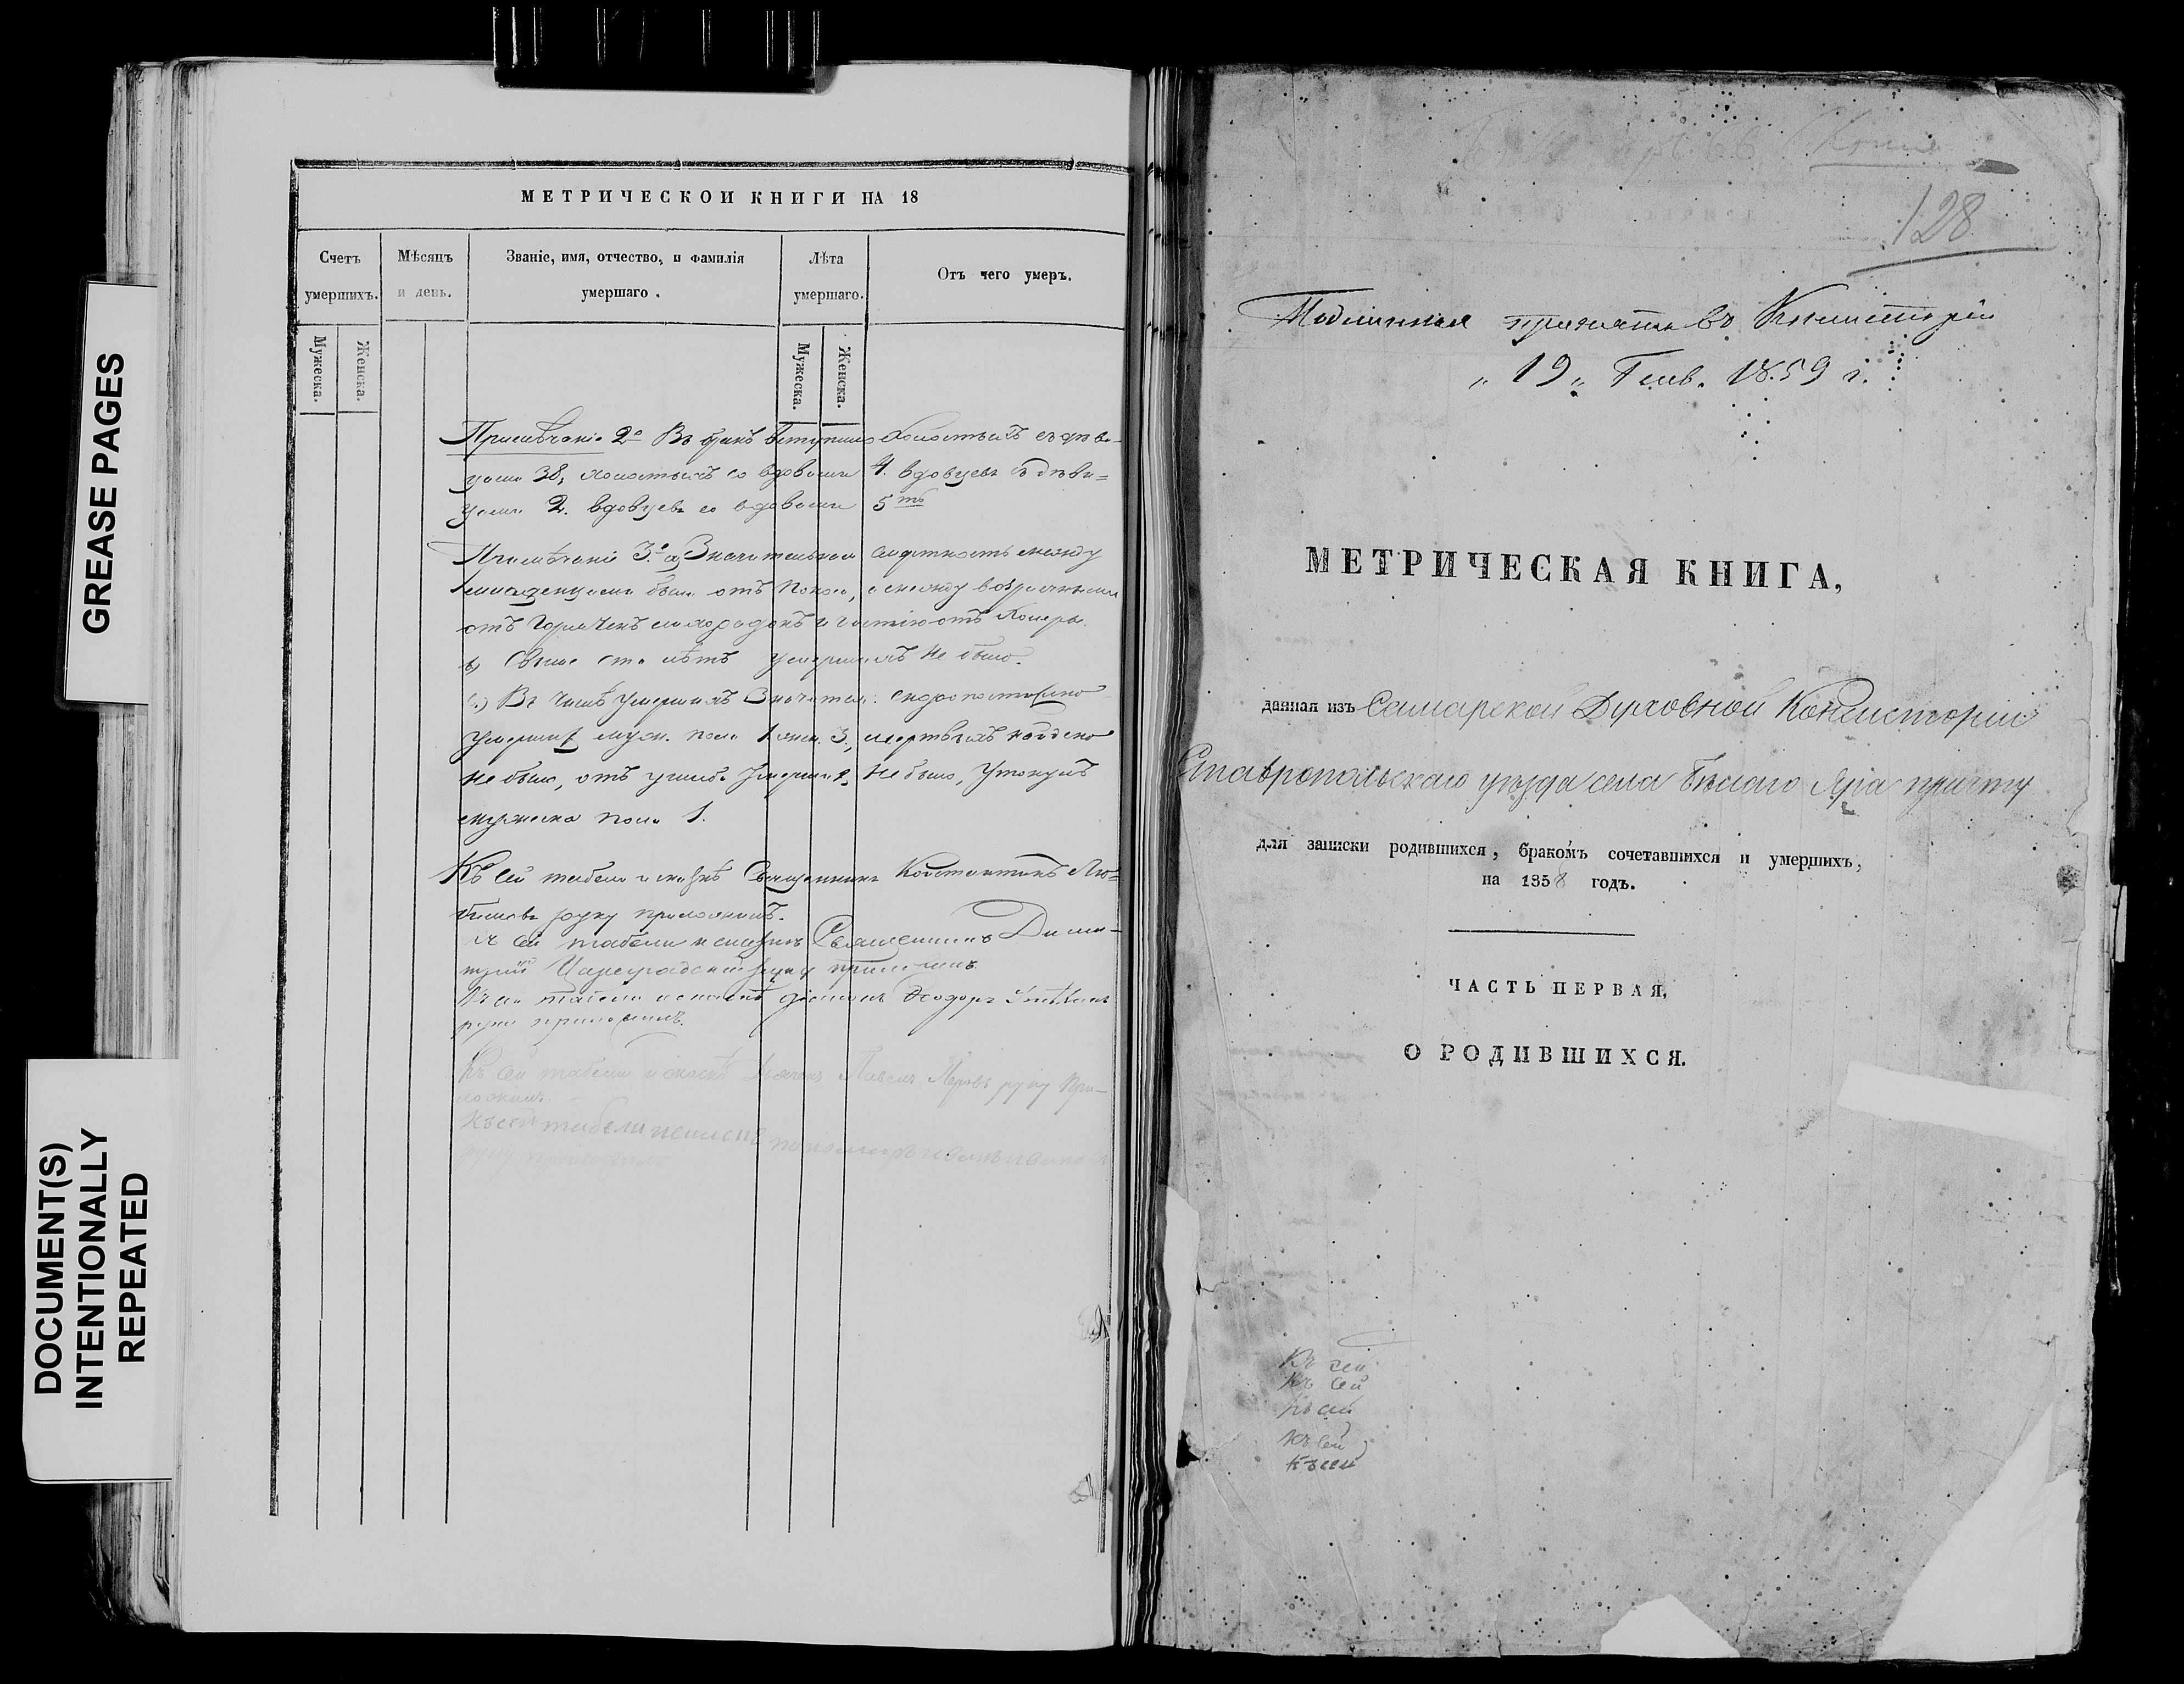 GREASE PAGES
DOCUMENT(S)
INTENTIONALLY
REPEATED
МЕТРИЧЕСКОИ КНИГИ НА 18
Счетъ умершихъ.
Мѣсяцъ и день.
Званіе, имя, отчество, и фамилія умершаго.
Лѣта умершаго.
Отъ чего умеръ.
Мужеска.
Женска.
Мужеска.
Женска.
Примѣчаніе 2е Въ бракъ вступило холостыхъ съ дѣви-
цами 38, холостыхъ со вдовами 4. вдовцевъ съ дѣви=
цами 2. вдовцевъ со вдовами 5ть
Примѣчаніе 3е а) Значительная смертность между
младенцами была отъ поноса, а между возрастными
отъ Горячекъ лихорадокъ и частію отъ Холеры.
в) Свыше ста лѣтъ умершихъ не было.
с.) Въ числѣ умершихъ Значится: скоропостижно
умершихъ муж. пола 1 жен. 3., мертвыхъ найдено
не было, отъ ушиба умерших не было, утонулъ
мужеска пола 1.
Къ сей табели и сказкѣ Священникъ Константинъ Лю=
бимовъ руку приложилъ.
Къ сей табели и сказкѣ Священникъ Дими-
трій Цареградскій руку приложилъ.
Къ сей табели и сказкѣ діаконъ Ѳеодоръ
руку приложилъ.
Къ сей табели и сказкѣ Дьячекъ Павелъ руку при-
ложилъ.
Къ сей табели и сказкѣ пономарь Иванъ
128
Подлинная принята въ Консисторіи
„19„ Генв. 1859 г.
МЕТРИЧЕСКАЯ КНИГА,
данная изъ Самарской Духовной Консисторіи
Ставропольскаго уѣзда села Бѣлаго Яра причту
для записки родившихся, бракомъ сочетавшихся и умершихъ,
на 1858 годъ.
ЧАСТЬ ПЕРВАЯ.
О РОДИВШИХСЯ.
Къ сей
Къ сей
Къ сей
Къ сей
Къ сей